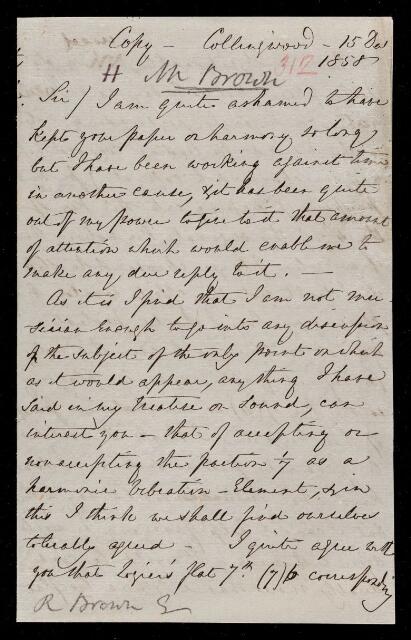 Copy - Collingwood - 15 Dec
1858
312
# Mr Brown
Sir / I am quite ashamed to have
kept your paper on harmony so long
but I have been working against time
in another cause, & it has been quite
out of my power to give to it that amount
of attention which would enable me to
make any due reply to it. -
As it is I find that I am not mu-
sician enough to go into any discussion
of the subject of the only point on which
as it would appear, anything I have
said in my treatise on Sound, can
interest you - that of accepting or
nonaccepting the fraction 1/7 as a
harmonic Vibration - Element, & in
this I think we shall find ourselves
tolerably agreed - I quite agree with
you that Logier's flat 7th (7)b corresponding
R Brown Esq